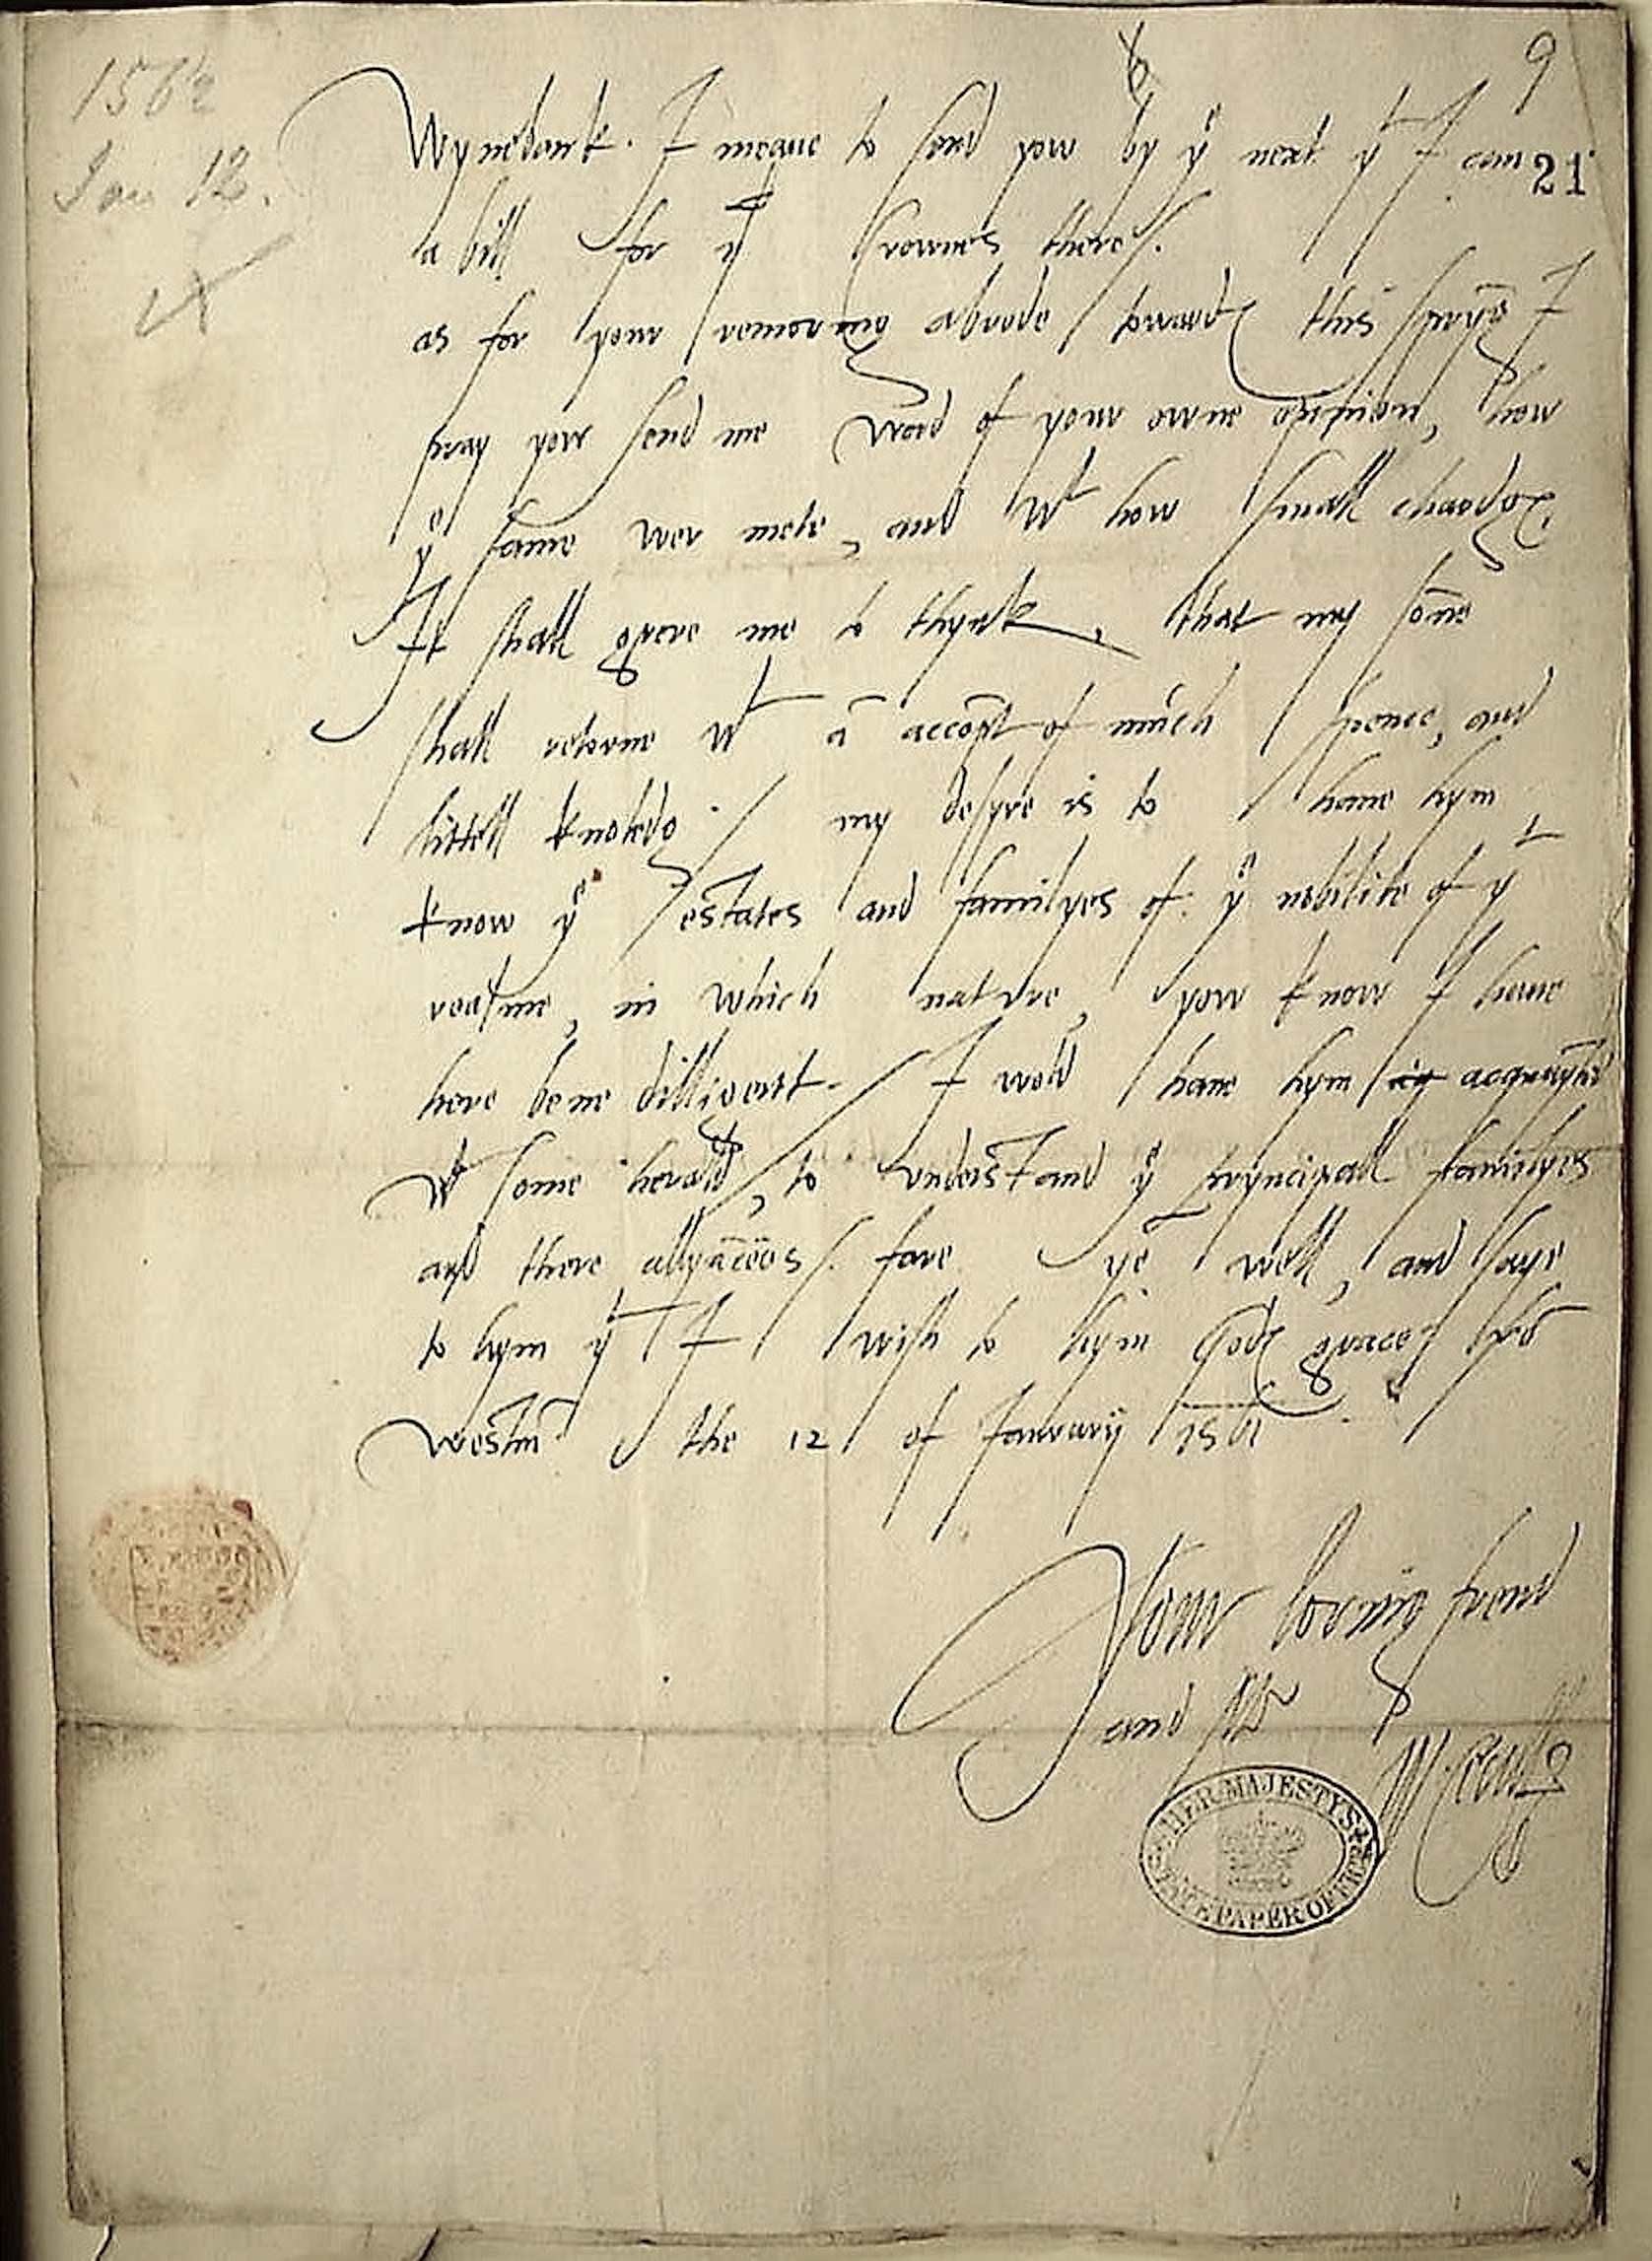 1562
Jan 12.
9
21
Wyndbank. I meane to send yow by yͤ next yᵗ I can
a bill for ij crownes there /.
as for your removing abrode / toward this spryng I
pray yow send me word of your owne opinion, how
yͤ same wer mete, and wᵗ how small chardg
It shall greve me to thynk, that my sōne
shall retorne wᵗ ā accōpt of much spence, and
littell knoledg ./ my desyre is to have hym
know yͤ estates and familyes of yͤ nobilite of yᵗ
realme, in which nature, yow know I have
here bene dilligent. / I wold have hym acquaynted
wᵗ some herald, to understand yͤ pryncipall familyes
and there allyāces /. fare ye well, and saye
to hym yᵗ I wish to hym Gods grace
westm the 12 of January 1561
Your loving frend
and Mr
W Cecill
HER MAJESTY'S STATE PAPER OFFICE